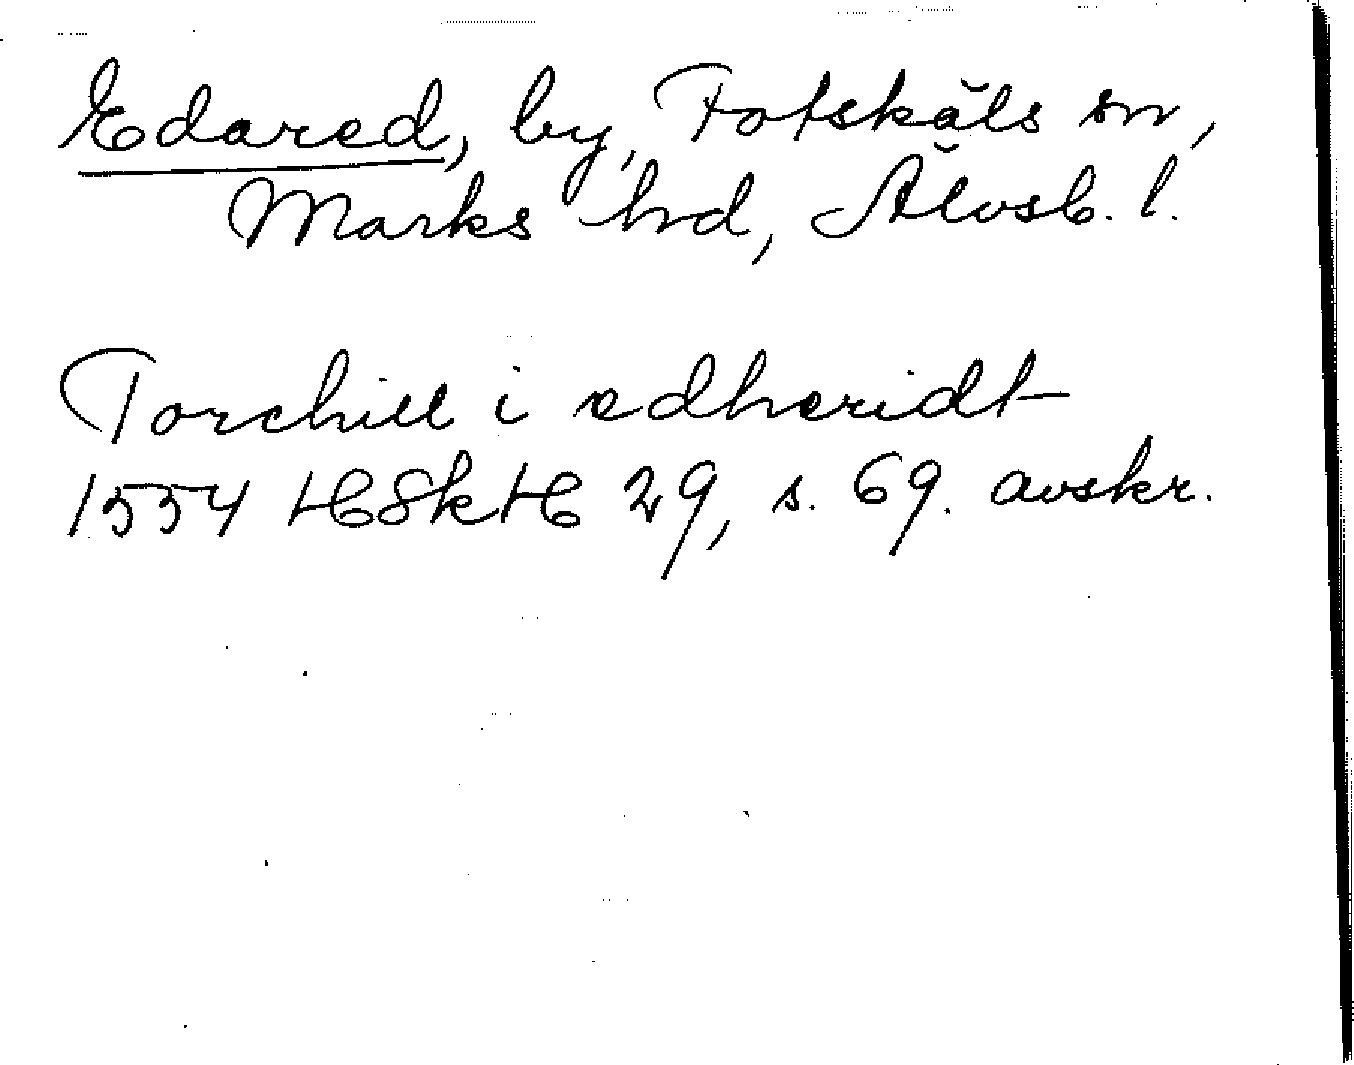 Edared, by, Fotskäls sn,
Marks hd, Älvsb. l.
Torchill i edheridt
1554 HSkH 29, s. 69. avskr.